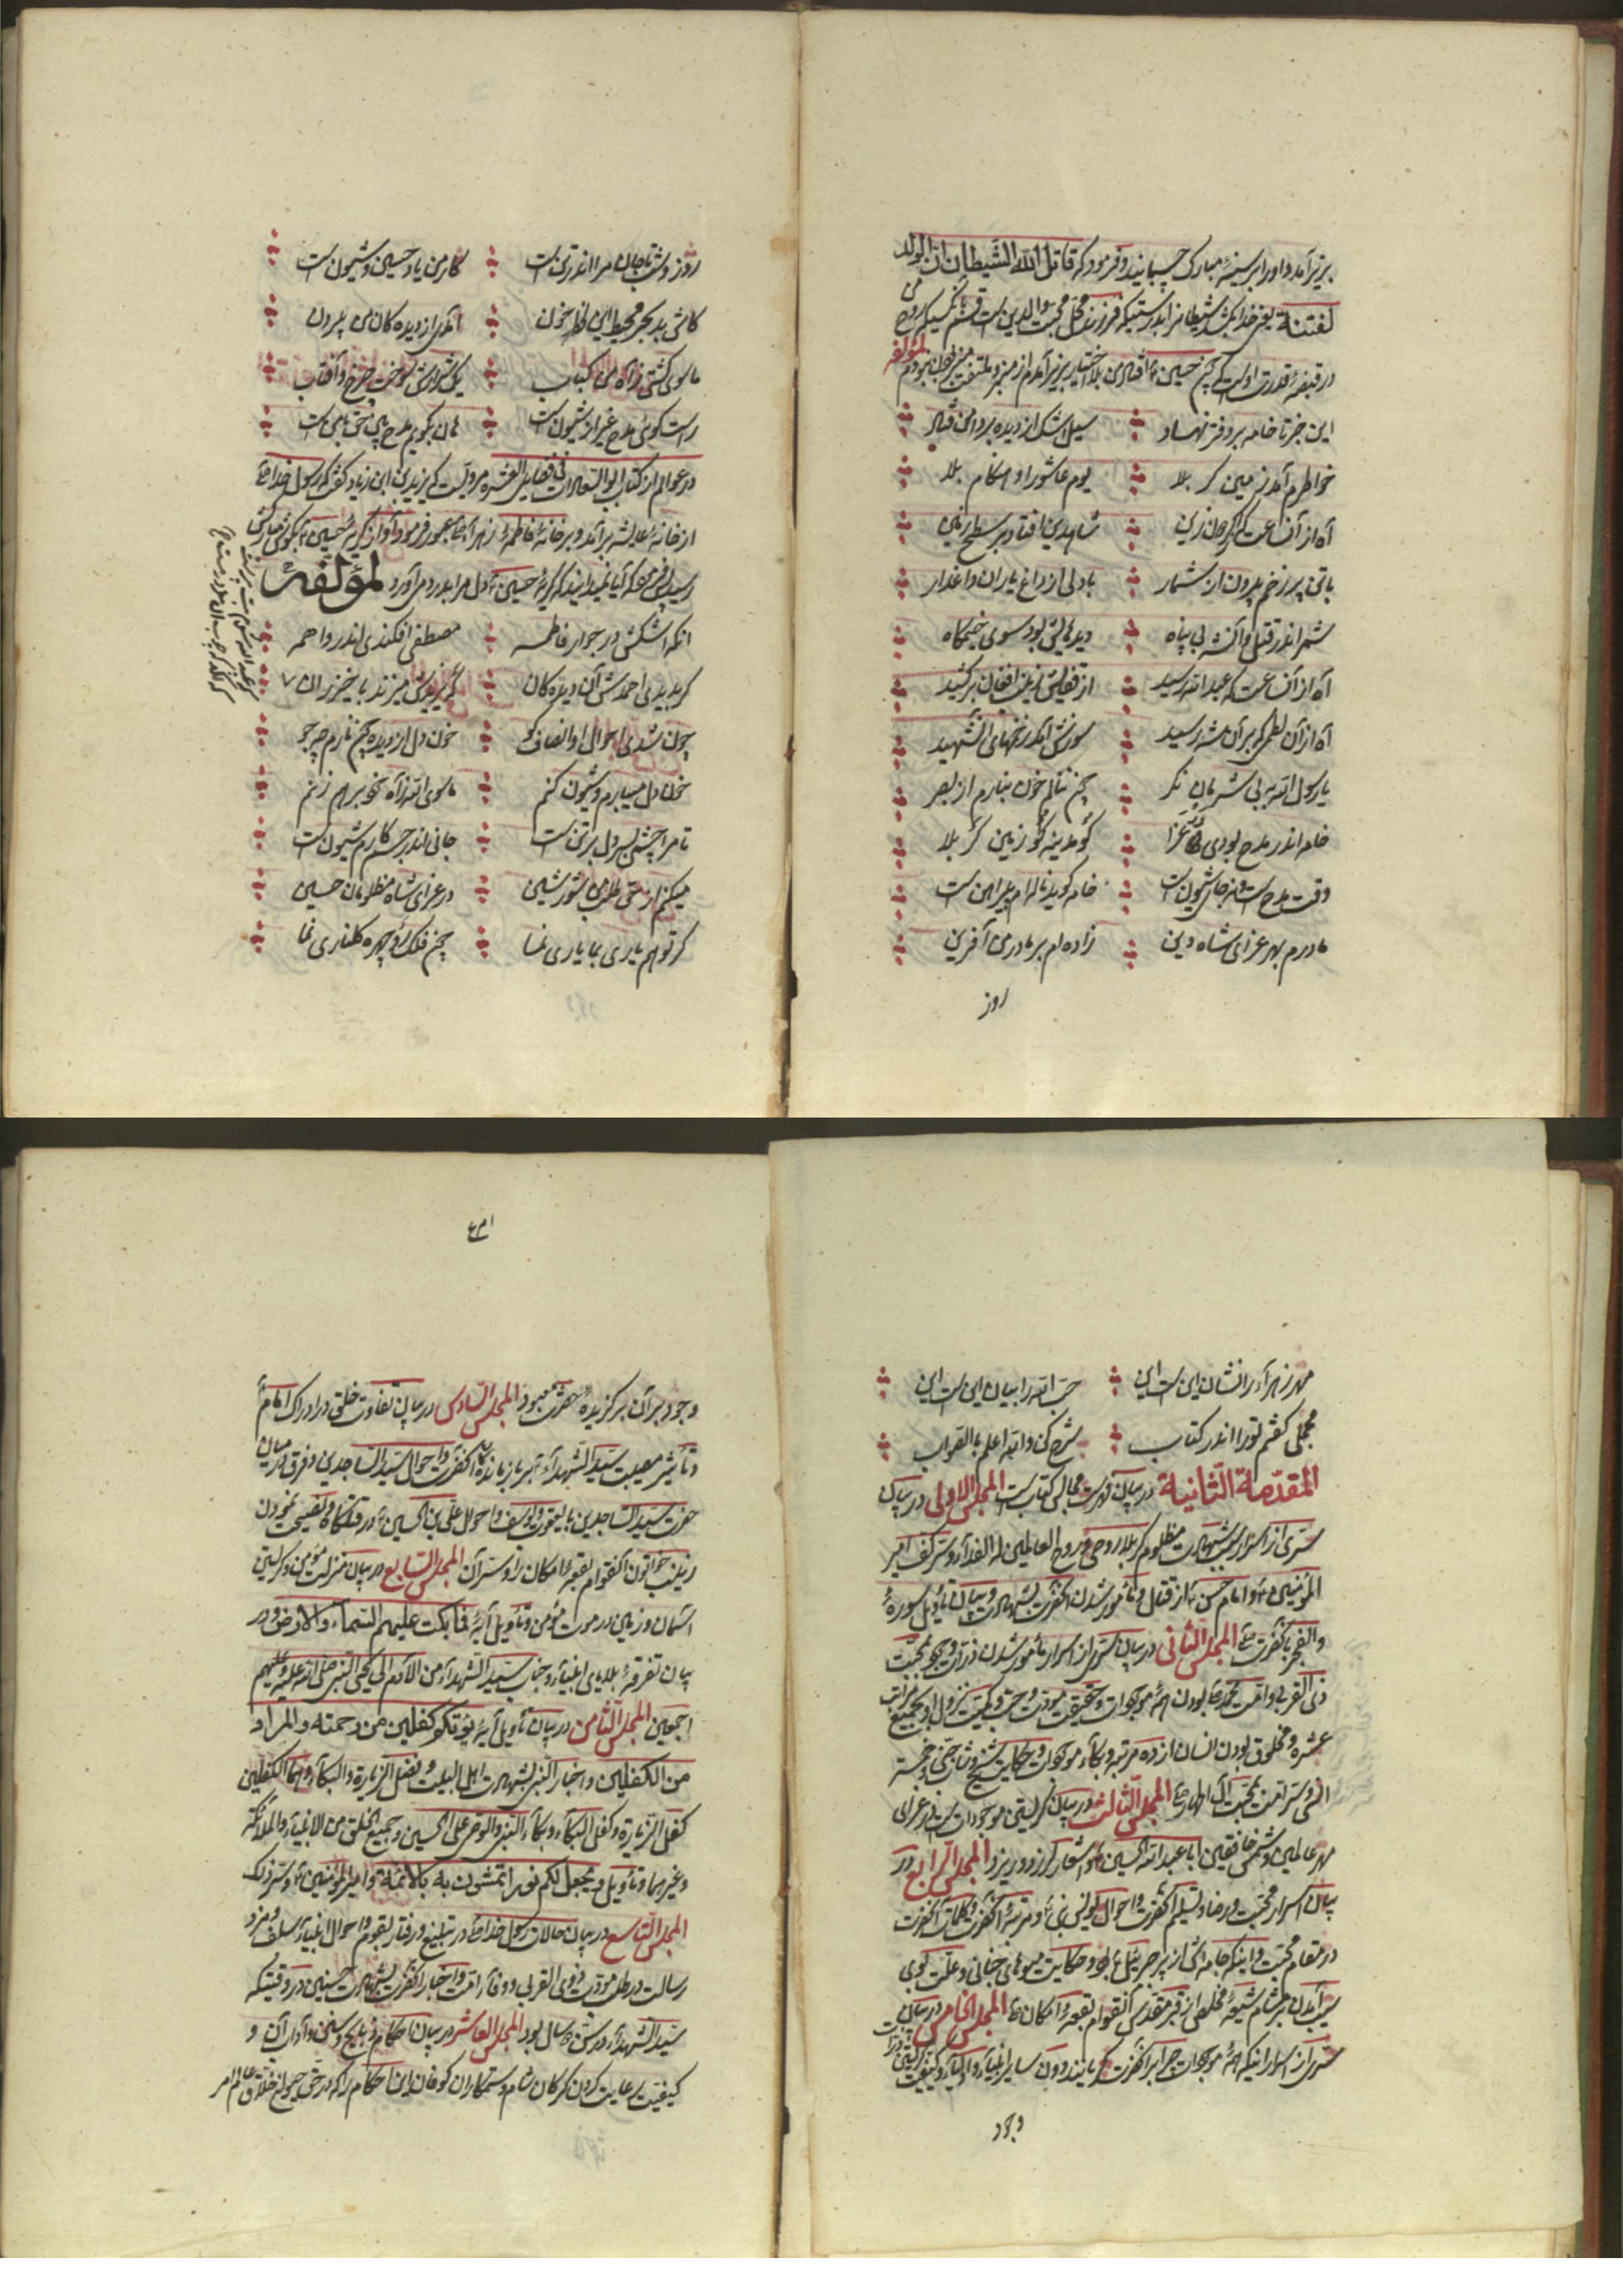 بزیر آمد و او را بر سینهٔ مبارک چسبانید و فرمود که قاتل الله الشیطان ان الولد
لفتنة یعنی خدا بکشد شیطانرا بدرستیکه فرزند محل محبت والدین است قسم بآنکسیکه روح من
در قبضهٔ قدرت اوست که چون حسین ع افتاد من بلا اختیار بزیر آمدم از منبر و ملتفت منبر بودن نبودم لمؤلفه
این خبر تا خامه بر دفتر نهاد
سیل اشک از دیده بر دامن فتاد
خواطرم آمد زمین کربلا
یوم عاشورا و هنگام بلا
آه از آن ساعت که از صدر زین
شاهدین افتاد بر سطح زمین
با تنی پر زخم بیرون از شمار
با دلی از داغ یاران داغدار
شمر اندر قتل و آنشه بی پناه
دیدهائی بود سوی خیمگاه
آه از آن ساعت که عبدالله رسید
از قفایش زینب افغان برکشید
آه از آن لطمه که بر آن شه رسید
سوزش آمد زخمهای آنشهید
یا رسول الله بر بی شرمان نگر
چون ننالم خون نبارم از بصر
خامه اندر مدح بودی در عزا
کو مدینه کو زمین کربلا
وقت مدح است و نه جای شیون است
خامه گوید ناله ام پیراهن است
مادرم بهر عزای شاه دین
زاده ام بر مادر من آفرین
روز
روز و شب تا جان مرا اندر تن است
کار من یاد حسین و شیون است
کاش بد بحر محیط این لحظه خون
آمدی از دیده کان من برون
ماسوی گشتی ز آه من کباب
یک شرارش سوخت چرخ و آفتاب
راست گوئی مدح غیر از شیون است
هان بگویم مدح پس حق با من است
در عوالم از کتاب ابو السعادات فی فضایل العشره مرویست که یزید بن ابی زیاد گفت که رسول خدا ص
از خانهٔ عایشه برآمد و بر خانهٔ فاطمهٔ زهرا ع عبور فرمود و آواز گریهٔ حسین ع بگوش مبارکش
رسید پس فرمود که آیا نمیدانید که گریهٔ حسین ع دل مرا بدرد می آورد لمؤلفه
آنکه اشکش در جوار فاطمه
مصطفی افکندی اندر واهمه
گر بدیدی احمدش آن دیده کان
که یزیدش میزند با خیزران
چون شدی احوال او انصاف گو
خون دل از دیده چون نارم چو جو
خون دل میبارم و شیون کنم
ماسوی الله ز آه خود برهم زنم
تا مرا چشمی بسر دل بر تن است
جانی اندر جسم کارم شیون است
میکنم از حق طلب من شور شین
در عزای شاه مظلومان حسین
گر تو هم یاری بما یاری نما
چون فلک رو چهره گلناری نما
مهر زهرا را نشان این است این
حب الله را بیان این است این
مجملی گفتم تو را اندر کتاب
شرح کن والله اعلم بالصواب
المقدّمة الثّانیة در بیان فهرست مجالس کتابست المجلس الاولی در بیان
سرّی از اسرار شهادت مظلوم کربلا روحی و روح العالمین له الفداء و سر کف امیر
المؤمنین ع و امام حسن ع از قتال و مأمور شدن آنحضرت بشهادت و بیان تأویل سورهٔ
والفجر بآنحضرت ع المجلس الثانی در بیان سرّی از اسرار مأمور شدن ذرات وجود بمحبت
ذی القربی و امت محمد ص بودن همهٔ موجودات و حقیقت مودت و حب و کیفیت نزول او بجمیع مراتب
عشره و مخلوق بودن انسان از ده مرتبه و بکاء موجودات و حکایت شیخ
و سر امت بمحبت آل اطهار ع المجلس الثالث در بیان گریستن موجودات در عزای
مهر عالمین و شمس خافقین ابا عبدالله الحسین ع و اشعار المجلس الرابع در
بیان اسرار محبت و رضا و تسلیم آنحضرت و احوال یونس نبی ع و مرتبهٔ آنحضرت و کلمات آنحضرت
در مقام محبت و اینکه جامه اش از پر جبرئیل ع بود و حکایت میوهای جنانی و علت بوی
سیب آمدن بر مشام شیعهٔ مخلص از قبر مقدس آنقوام بقعهٔ امکان ع المجلس الخامس در بیان
سری از اسرار اینکه همهٔ موجودات چرا بر آنحضرت گریانند و دون سایر انبیاء و اولیاء و کیفیت
وجود
وجود بر آن برگزیدهٔ حضرت معبود المجلس السادس در بیان تفاوت خلق در ادراک امام ع
و تأثیر مصیبت سید الشهداء ع و احوال سید الساجدین و فرق در میان
حزن سید الساجدین با یعقوب و یوسف و احوال علی بن الحسین ع در قتلگاه و نصیحت نمودن
زینب خواتون آنقوام بقعهٔ امکان را و سر آن المجلس السابع در بیان منزلت مؤمن و گریستن
آسمان و زمین در موت مؤمن و تأویل آیهٔ فما بکت علیهم السماء والارض و در
بیان تفرقهٔ بلایای انبیاء و جناب سید الشهداء من الآدم الی یحیی النبی صلی الله علیه و علیهم
اجمعین المجلس الثامن در بیان تأویل آیهٔ یؤتکم کفلین من رحمته والمراد
من الکفلین و اخبار النبی بشهادت اهل البیت و فضل الزیارة والبکاء و هما الکفلین
کفل الزیارة و کفل البکاء و بکاء النبی والوصی علی الحسین و جمیع الخلق من الانبیاء والملائکة
و غیرهما و تأویل و یجعل لکم نورا تمشون به بالائمة و امیر المؤمنین ع و سر ذلک
المجلس التاسع در بیان حالات رسول خدا ص در تبلیغ و رفتار بقوم و احوال انبیاء سلف و مزد
رسالت در طلب مودت ذوی القربی و وفاء امت و اخبار آنحضرت بشهادت حسین ع در وقتیکه
سید الشهداء در سن ۵ سال بود المجلس العاشر در بیان احکام ذبایح و سنن و آداب آن و
کیفیت رعایت کردن گرگان شام و ستمکاران کوفان این احکام را که در حق حیوان خلاق عالم امر